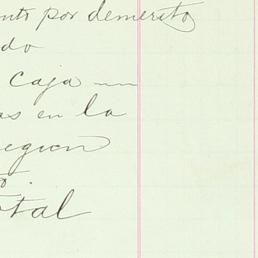 ento por demerito
do
caja un
as en la
region
o.
otal